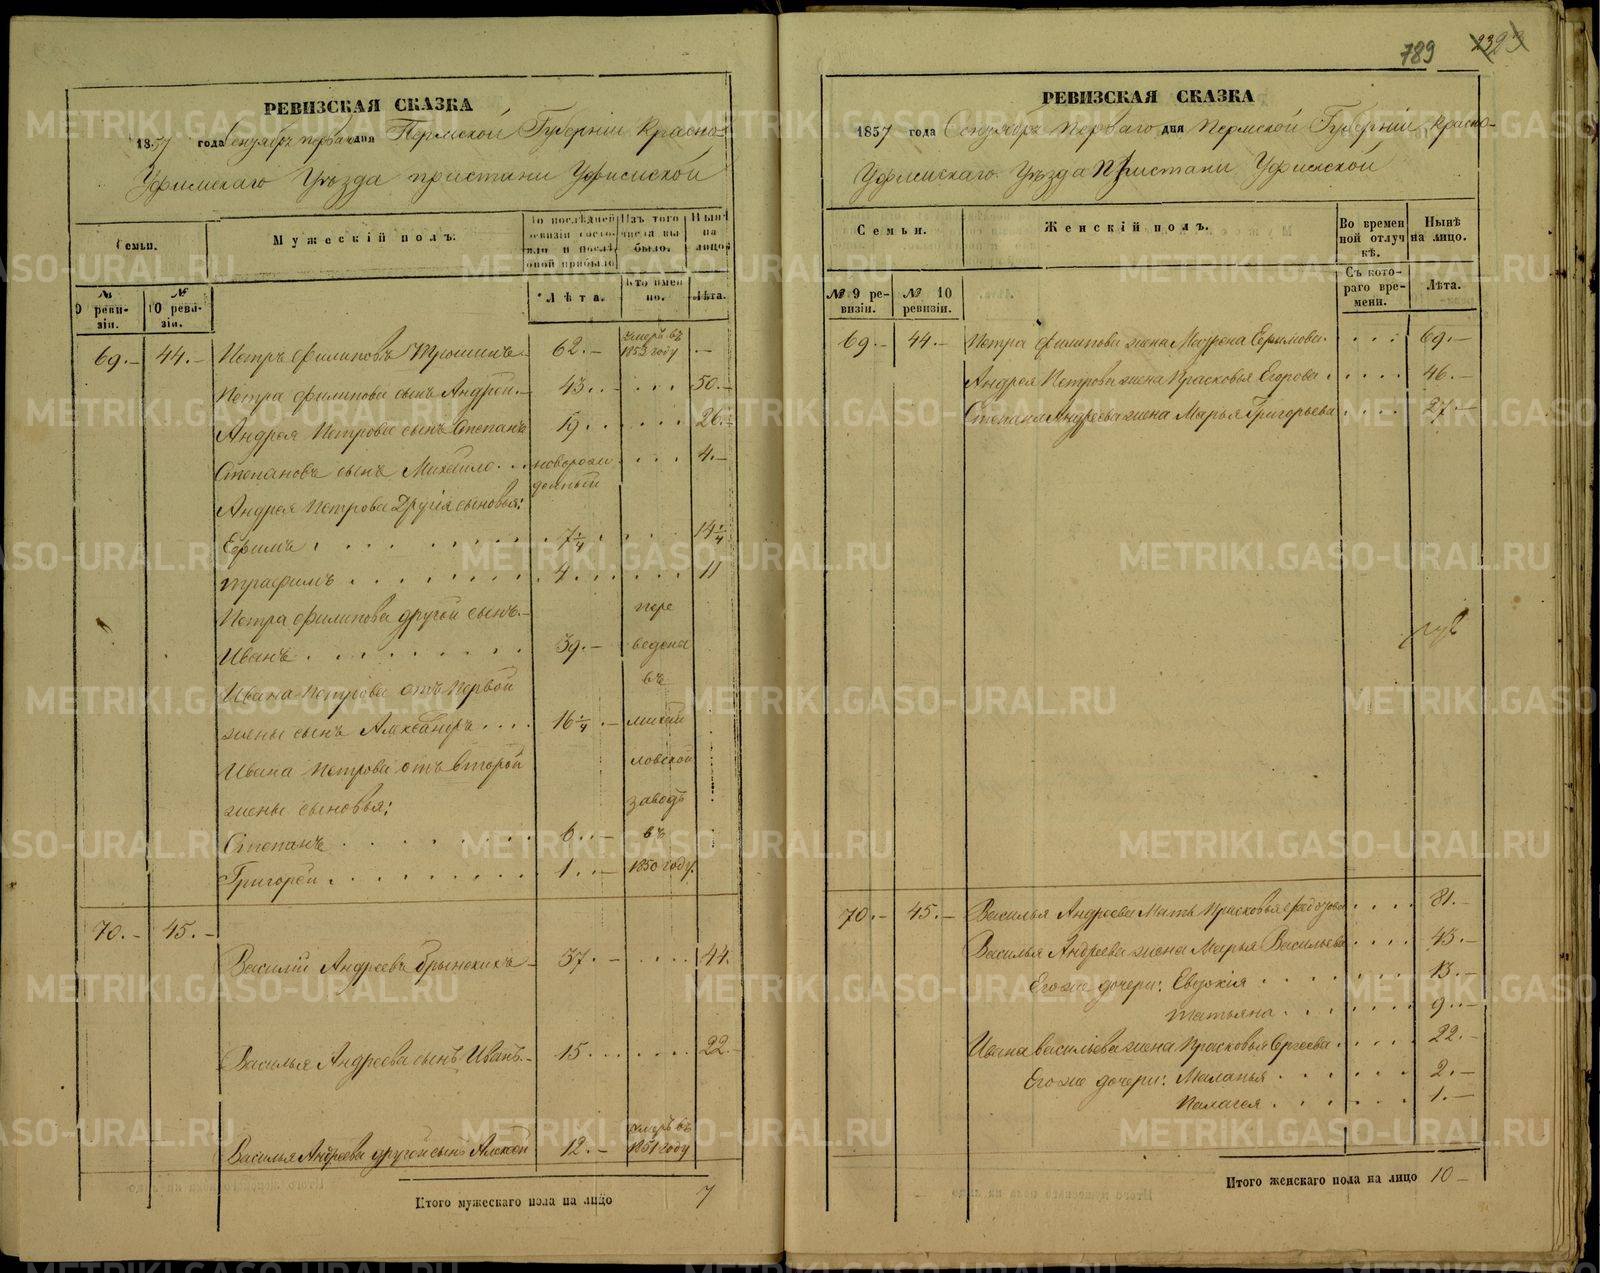 789 2323
РЕВИЗСКАЯ СКАЗКА
1857 года Сентября перваго дня Пермской Губерніи Красно-
Уфимскаго Уѣзда пристани Уфимской
Семьи.
Мужескій полъ.
По послѣдней ревизіи состояло и послѣ оной прибыло
Изъ того числа выбыло.
Нынѣ на лицо
№ 9 ревизіи.
№ 10 ревизіи.
Лѣта.
Кто именно.
Лѣта.
69.- 44.- Петръ Филиповъ 62.- умеръ въ 1853 году .-
Петра Филипова сынъ Андрей.- 43..- ... 50.-
Андрея Петрова сынъ Степанъ 19 ...... 26
Степановъ сынъ Михайло ... новорожденный ... 4.-
Андрея Петрова Другія сыновья:
Ефимъ ........ 7 1/4 ... 14 1/4
Трафимъ ......... 4 ...... 11
Петра Филипова другой сынъ.-
Иванъ ......... 39.-
Ивана Петрова отъ первой
жены сынъ Александръ .... 16 1/4 .-
Ивана Петрова отъ второй
жены сыновья:
Степанъ ........ 6..-
Григорей ......... 1..-
пере
ведена
въ
михай
ловской
заводъ
въ
1850 году.
70.- 45.-
Василій Андреевъ 37.- .... 44.
Василья Андреева сынъ Иванъ.- 15 ....... 22.-
Василья Андреева другой сынъ Алексей 12.- умеръ въ 1851 году
Итого мужескаго пола на лицо 7
РЕВИЗСКАЯ СКАЗКА
1857 года Сентября перваго дня Пермской Губерніи Красно-
Уфимскаго Уѣзда Пристани Уфимской
Семьи.
Женскій полъ.
Во временной отлучкѣ.
Нынѣ на лицо.
№ 9 ревизіи.
№ 10 ревизіи.
Съ котораго времени.
Лѣта.
69.- 44.- Петра Филипова жена Маурена Ефимова. ... 69.-
Андрея Петрова жена Прасковья Егорова ..... 46.-
Степана Андреева жена Марья Григорьева .... 27.-
70.- 45.- Василья Андреева Мать Прасковья .... 81.-
Василья Андреева жена Марья Васильева .... 43.-
Его же дочери: Евдокія ........ 13.-
Татьяна ....... 9..-
Ивана Васильева жена Прасковья Сергеева ..... 22.-
Его же дочери: Маланья ...... 2.-
Палагея ...... 1.-
Итого женскаго пола на лицо 10 -
METRIKI.GASO-URAL.RU